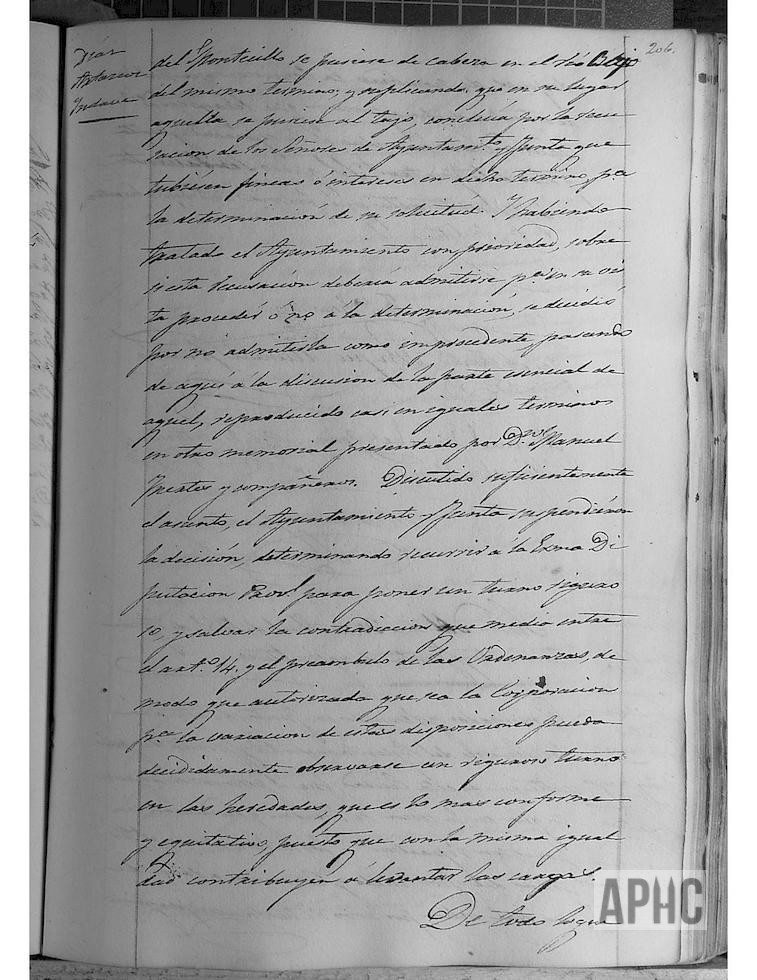 206.
Diaz
del Monticillo se pusiese de cabera en el rio Bajo
del mismo termino, y suplicando, que en su lugar
aquella se pusiese al tajo, concluia por la recu
sacion de los Señores de Ayuntam.to y Junta que
tubiesen fincas ó intereses en dicho termino, p.a
la determinación de su solicitud. Y habiendo
tratado el Ayuntamiento con prioridad, sobre
si esta recusación deberia admitirse p.a en su vis
ta proceder ó no á la determinación, se decidió
por nó admitirla como improcedente, pasando
de aqui á la discusion de la parte esencial de
aquel, reproducido casi en iguales terminos
en otro memorial presentado por D.n Manuel
y compañeros. Discutido suficientemente
el asunto, el Ayuntamiento y Junta suspendieron
la decisión, determinando recurrir á la Exma Di
putacion Prov.l para poner un turno riguro
so, y salvar la contradiccion que media entre
el art.o 14, y el preambulo de las Ordenanzas, de
modo que autorizada que sea la Corporacion
p.a la variacion de estas disposiciones pueda
decididamente observarse un riguroso turno
en las heredades, que es lo mas conforme
y equitativo, puesto que con la misma igual
dad contribuyen á levantar las cargas.
De todo lo que
APHC